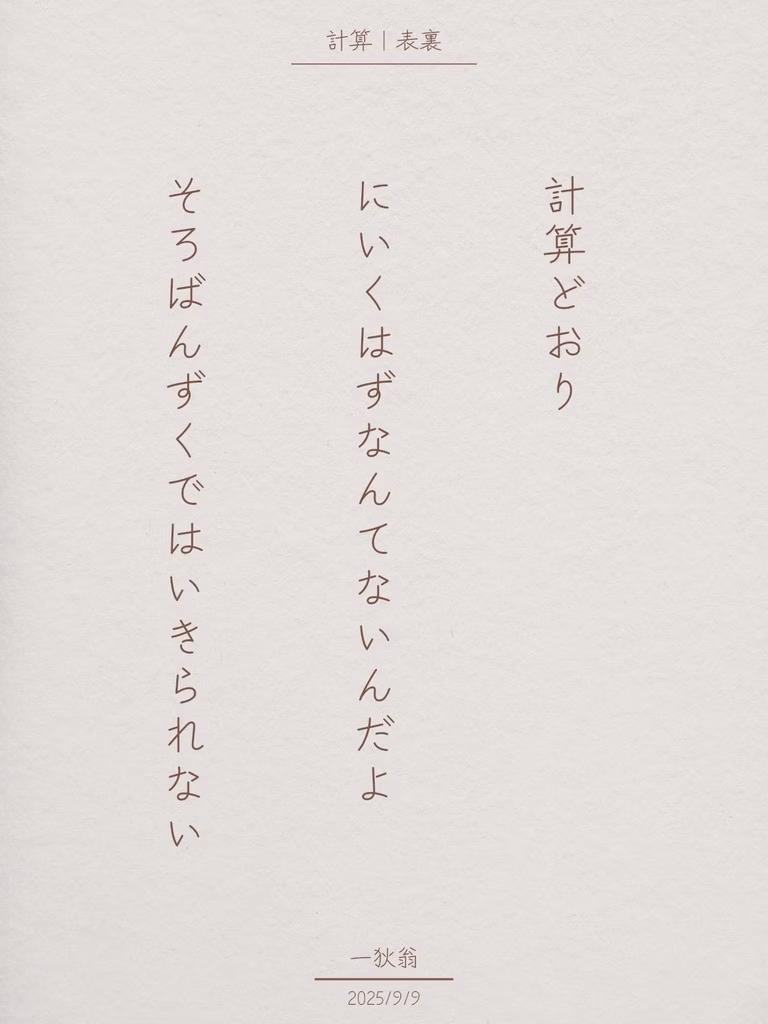 計算｜表裏
計算どおり
にいくはずなんてないんだよ
そろばんずくではいきられない
一狄翁
2025/9/9